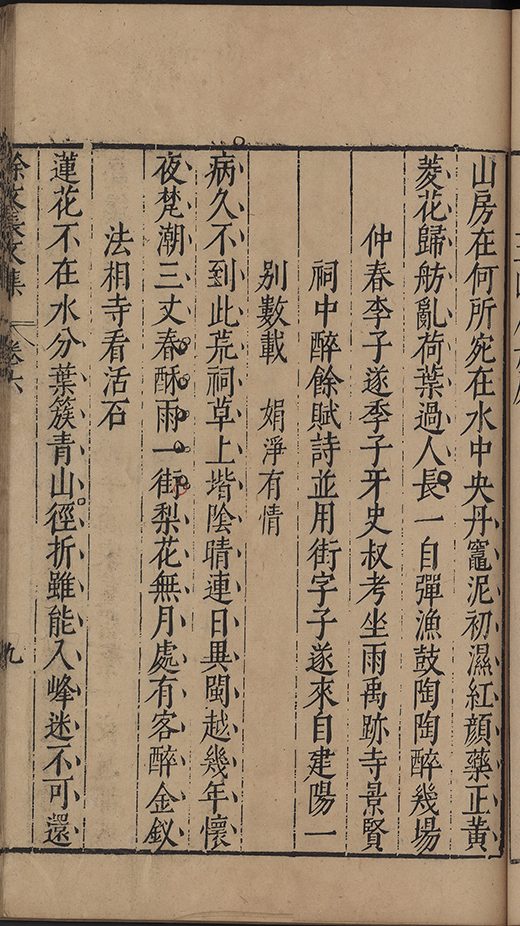 山房在何所宛在水中央丹竈泥初濕紅顏藥正黃
菱花歸舫亂荷葉過人長一自彈漁鼓陶陶醉幾場
仲春李子遂季子牙史叔考坐雨禹跡寺景賢
祠中醉餘賦詩並用街字子遂來自建陽一
別數載　娟淨有情
病久不到此荒祠草上堦陰晴連日異閩越幾年懷
夜凳潮三丈春酥雨一街梨花無月處有客醉金釵
法相寺看活石
蓮花不在水分葉簇青山徑折雖能入峰迷不可還
徐文長文集　卷六　九